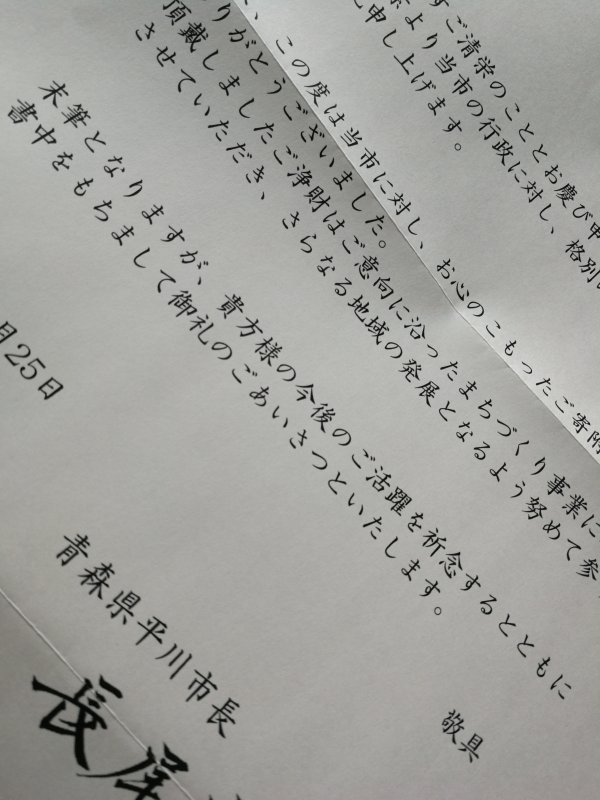 すご清栄のこととお慶び申
より当市の行政に対し、格別の
申し上げます。
、この度は当市に対し、お心のこもったご寄附
りがとうございました。
頂戴しましたご浄財はご意向に沿ったまちづくり事業に
させていただき、さらなる地域の発展となるよう努めて参
末筆となりますが、貴方様の今後のご活躍を祈念するとともに
書中をもちまして御礼のごあいさつといたします。
敬具
月25日
青森県平川市長
長尾